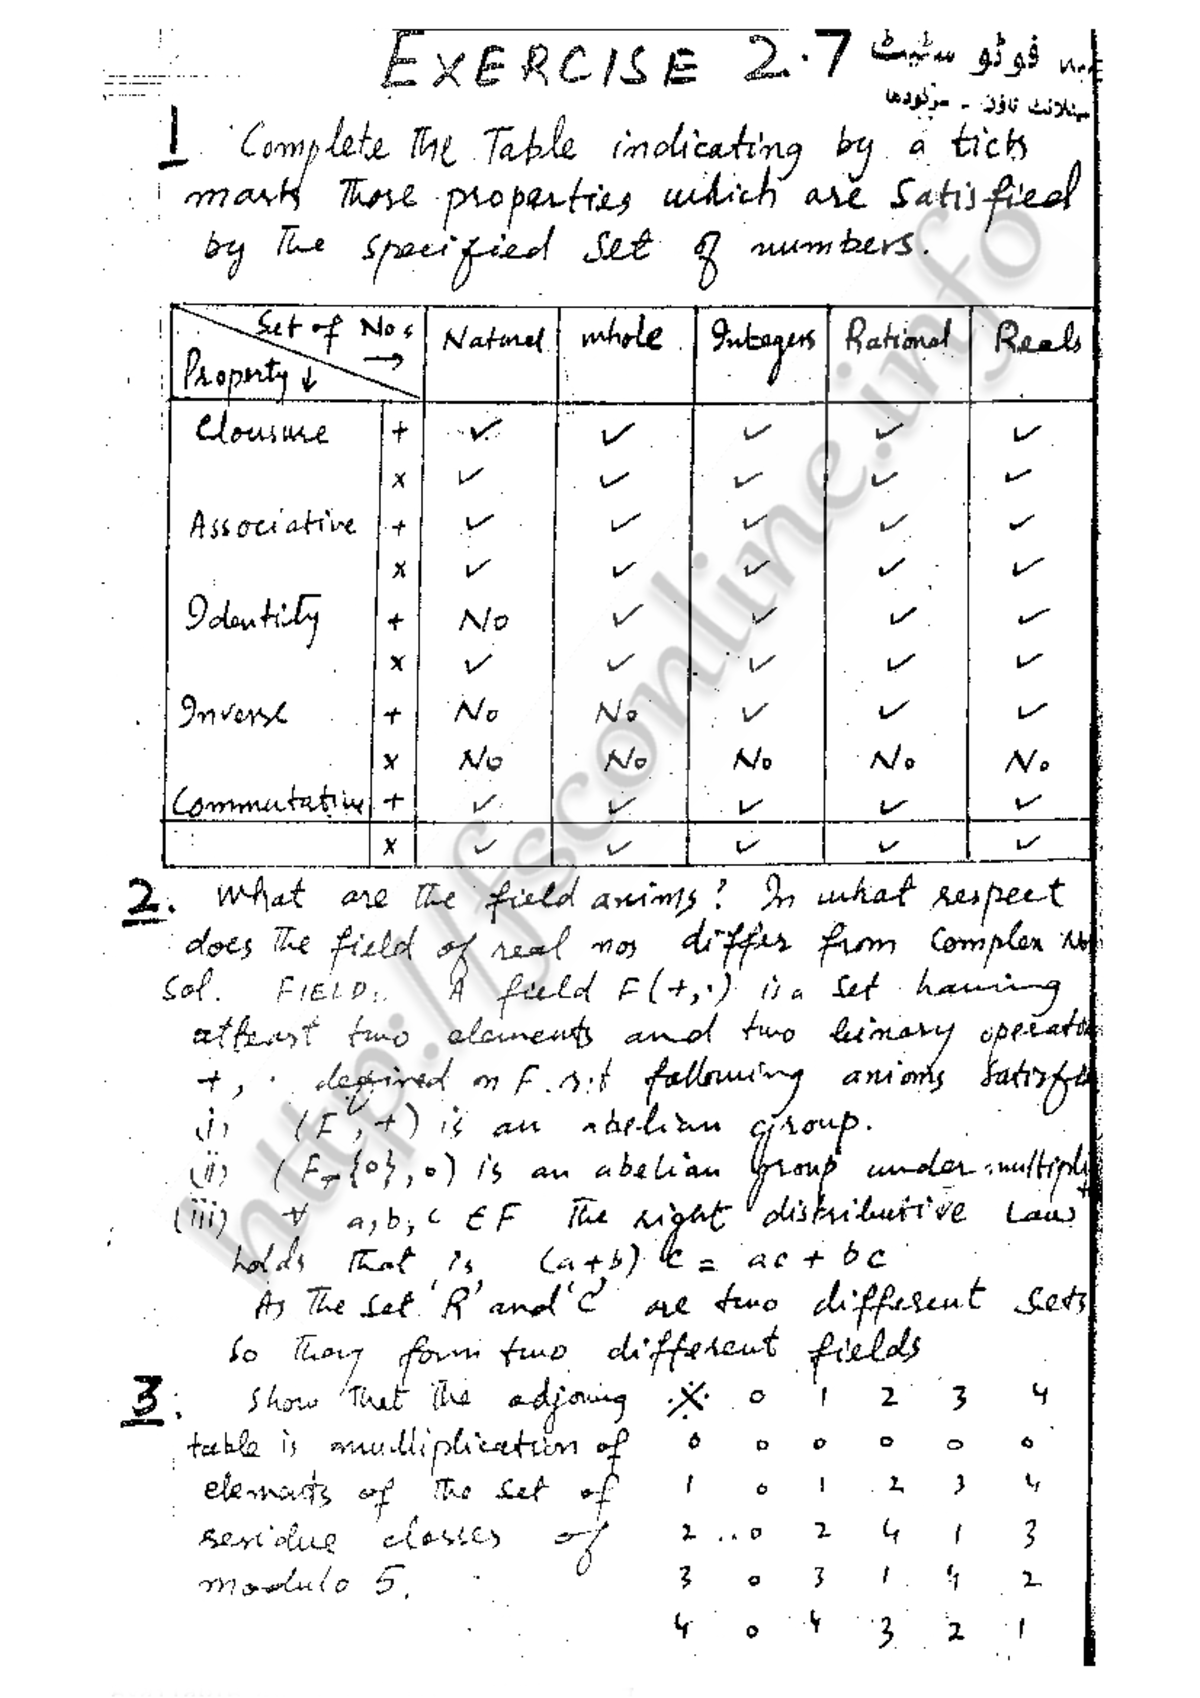 EXERCISE 2.7 فوٹو سٹیٹ
سیٹلائٹ ٹاؤن - سرگودھا
1. Complete the Table indicating by a tick
mark those properties which are satisfied
by the specified set of numbers.
Set of Nos → Natural whole Integers Rational Reals
Property ↓
Clousure + ✓ ✓ ✓ ✓ ✓
x ✓ ✓ ✓ ✓ ✓
Associative + ✓ ✓ ✓ ✓ ✓
x ✓ ✓ ✓ ✓ ✓
Identity + No ✓ ✓ ✓ ✓
x ✓ ✓ ✓ ✓ ✓
Inverse + No No ✓ ✓ ✓
x No No No No No
Commutative + ✓ ✓ ✓ ✓ ✓
x ✓ ✓ ✓ ✓ ✓
2. What are the field axioms? In what respect
does the field of real nos differ from Complex No
Sol. FIELD:. A field F(+,·) is a set having
atleast two elements and two binary operato
+, · defined on F. s.t following axioms satisfie
(i) (F, +) is an abelian group.
(ii) (F-{0}, o) is an abelian group under multipli
(iii) ∀ a, b, c ∈ F The right distributive Law
holds that is (a+b) c = ac + bc
As the set 'R' and 'C' are two different sets
so they form two different fields
3. Show that the adjoing X 0 1 2 3 4
table is multiplication of 0 0 0 0 0 0
elements of the set of 1 0 1 2 3 4
residue classes of 2 0 2 4 1 3
modulo 5. 3 0 3 1 4 2
4 0 4 3 2 1
http://fsconline.info